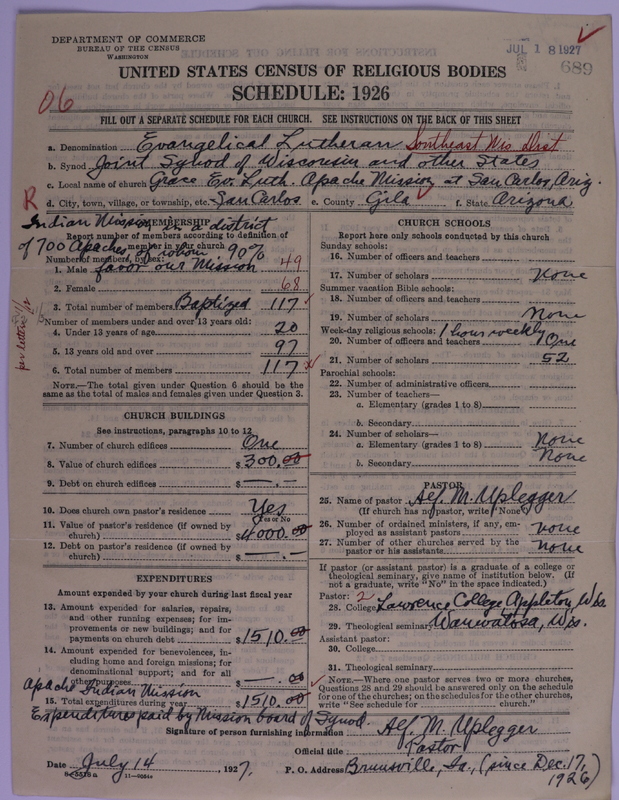 DEPARTMENT OF COMMERCE
BUREAU OF THE CENSUS
WASHINGTON
JUL 18 1927
689
UNITED STATES CENSUS OF RELIGIOUS BODIES
SCHEDULE: 1926
06
FILL OUT A SEPARATE SCHEDULE FOR EACH CHURCH. SEE INSTRUCTIONS ON THE BACK OF THIS SHEET
a. Denomination Evangelical Lutheran Southeast Wis Dist
b. Synod Joint Synod of Wisconsin and other States
c. Local name of church Grace Ev. Luth. Apache Mission at San Carlos, Ariz.
R d. City, town, village, or township, etc. San Carlos e. County Gila f. State Arizona
MEMBERSHIP
Indian Mission in a district
Report number of members according to definition of
of 700 Apaches of whom 90%
member in your church
Number of members, by sex:
favor our Mission
1. Male 49
2. Female 68
3. Total number of members Baptized 117
Number of members under and over 13 years old:
4. Under 13 years of age 20
5. 13 years old and over 97
6. Total number of members 117
per letter
NOTE.—The total given under Question 6 should be
same as the total of males and females given under Question 3.
CHURCH BUILDINGS
See instructions, paragraphs 10 to 12
7. Number of church edifices One
8. Value of church edifices $300.00
9. Debt on church edifices $—.—
10. Does church own pastor's residence Yes
(Yes or No)
11. Value of pastor's residence (if owned by
church) $4000.00
12. Debt on pastor's residence (if owned by
church) $—.—
EXPENDITURES
Amount expended by your church during last fiscal year
13. Amount expended for salaries, repairs,
and other running expenses; for im-
provements or new buildings; and for
payments on church debt $1510.00
14. Amount expended for benevolences, in-
cluding home and foreign missions; for
denominational support; and for all
other purposes $—.00
Apache Indian Mission
15. Total expenditures during year $1510.00
Expenditures paid by Mission board of Synod.
CHURCH SCHOOLS
Report here only schools conducted by this church
Sunday schools:
16. Number of officers and teachers
17. Number of scholars None
Summer vacation Bible schools:
18. Number of officers and teachers
19. Number of scholars None
Week-day religious schools: 1 hour weekly
20. Number of officers and teachers One
21. Number of scholars 52
Parochial schools:
22. Number of administrative officers
23. Number of teachers—
a. Elementary (grades 1 to 8)
b. Secondary
24. Number of scholars—
a. Elementary (grades 1 to 8) None
b. Secondary None
PASTOR
25. Name of pastor Alf. M. Uplegger
(If church has no pastor, write "None")
26. Number of ordained ministers, if any, em-
ployed as assistant pastors none
27. Number of other churches served by the
pastor or his assistants None
If pastor (or assistant pastor) is a graduate of a college or
theological seminary, give name of institution below. (If
not a graduate, write "No" in the space indicated.)
Pastor: 2
28. College Lawrence College Appleton, Wis.
29. Theological seminary Wauwatosa, Wis.
Assistant pastor:
30. College
31. Theological seminary
NOTE.—Where one pastor serves two or more churches,
Questions 28 and 29 should be answered only on the schedule
for one of the churches; on the schedules for the other churches,
write "See schedule for church."
Signature of person furnishing information Alf. M. Uplegger
Official title Pastor
Date July 14, 1927. P. O. Address Brunsville, Ia., (since Dec. 17, 1926)
8-5518 a 11-9054